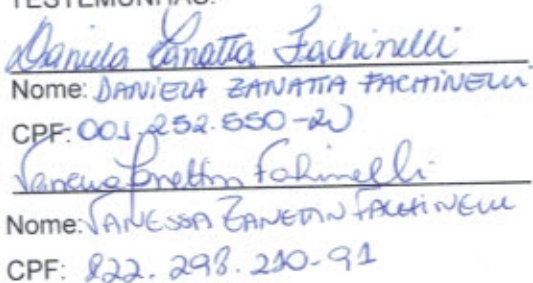 TESTEMUNHAS:
Daniela Zanatta Fachinelli
Nome: DANIELA ZANATTA FACHINELLI
CPF: 001.252.550-20
Vanessa Zanettin Fachinelli
Nome: VANESSA ZANETTIN FACHINELLI
CPF: 822.298.210-91